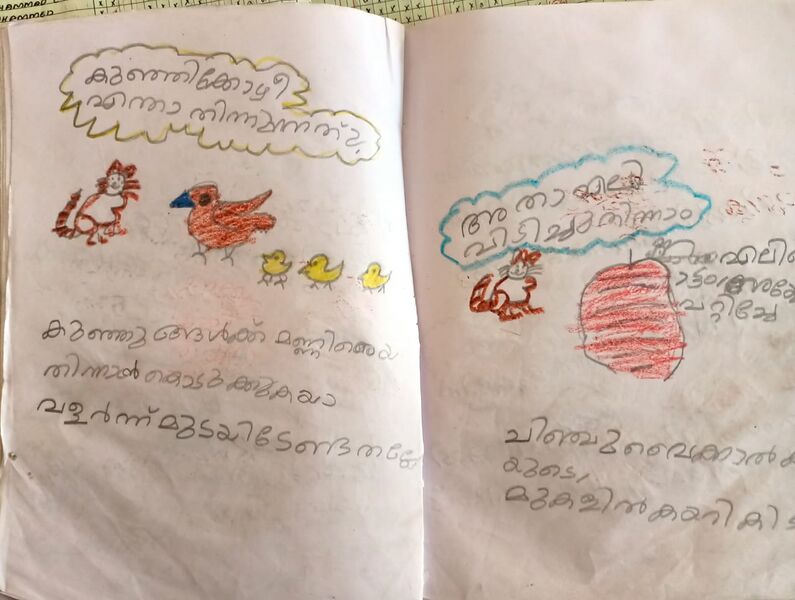 കുഞ്ഞികോഴീ
എന്താ തിന്നുന്നത്?
കുഞ്ഞുങ്ങൾക്ക് മണ്ണിരയെ
തിന്നാൻ കൊടുക്കുകയാ
വളർന്ന് മുട്ടയിടേണ്ടതല്ലേ
അതാ എലി
പിടിച്ചുതിന്നാം
എലി
പറ്റിച്ചേ
പിഞ്ചു വൈക്കോൽ
യുടെ,
മുകളിൽ കയറി